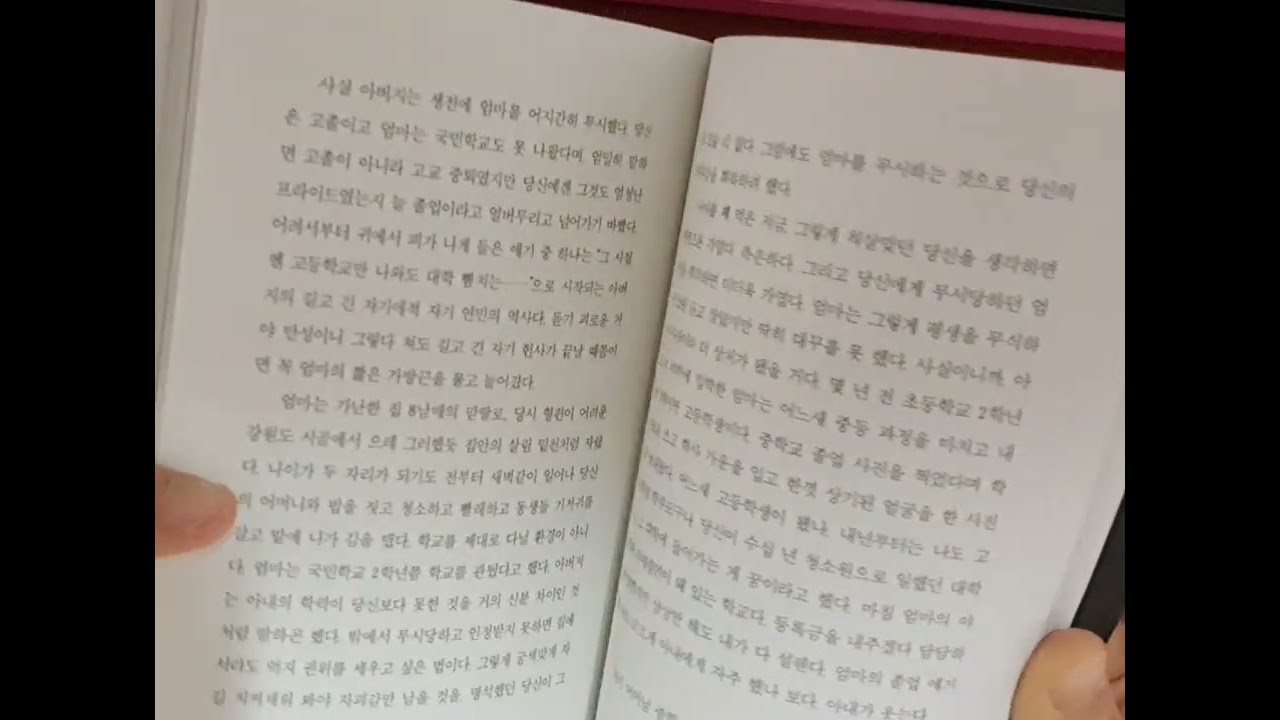 사실 아버지는 생전에 엄마를 어지간히 무시했다. 당신
은 고졸이고 엄마는 국민학교도 못 나왔다며. 엄밀히 말하
면 고졸이 아니라 고교 중퇴였지만 당신에겐 그것도 엄청난
프라이드였는지 늘 졸업이라고 얼버무리고 넘어가기 바빴다.
어려서부터 귀에서 피가 나게 들은 얘기 중 하나는 "그 시절
엔 고등학교만 나와도 대학 뺨치는——"으로 시작되는 아버
지의 길고 긴 자기애적 자기 연민의 역사다. 듣기 괴로운 거
야 만성이니 그렇다 쳐도 길고 긴 자기 헌사가 끝날 때쯤이
면 꼭 엄마의 짧은 가방끈을 물고 늘어졌다.
엄마는 가난한 집 8남매의 맏딸로, 당시 형편이 어려운
강원도 시골에서 으레 그러했듯 집안의 살림 밑천처럼 자랐
다. 나이가 두 자리가 되기도 전부터 새벽같이 일어나 당신
의 어머니와 밥을 짓고 청소하고 빨래하고 동생들 기저귀를
갈고 밭에 나가 김을 맸다. 학교를 제대로 다닐 환경이 아니
다. 엄마는 국민학교 2학년쯤 학교를 관뒀다고 했다. 아버지
는 아내의 학력이 당신보다 못한 것을 거의 신분 차이인 것
처럼 말하곤 했다. 밖에서 무시당하고 인정받지 못하면 집에
서라도 억지 권위를 세우고 싶은 법이다. 그렇게 궁색맞게 자
길 치켜세워 봐야 자괴감만 남을 것을. 명석했던 당신이 그
그럼에도 엄마를 무시하는 것으로 당신의
했다.
지금, 그렇게 당신을 생각하면
가엾다. 측은하다. 그리고 당신에게 무시당하던 엄
더더욱 가엾다. 엄마는 그렇게 평생을 무식하
대꾸를 못 했다. 사실이니까. 아
더 상처가 됐을 거다. 몇 년 전 초등학교 2학년
입학한 엄마는 어느새 중등 과정을 마치고 내
고등학생이다. 중학교 졸업 사진을 찍었다며 학
쓰고 학사 가운을 입고 한껏 상기된 얼굴을 한 사진
어느새 고등학생이 됐나. 내년부터는 나도 고
당신이 수십 년 청소원으로 일했던 대학
들어가는 게 꿈이라고 했다. 마침 엄마의 야
꽤 있는 학교다. 등록금을 내주겠다 담담하
상상만 해도 내가 다 설렌다. 엄마의 졸업 얘기
아내에게 자주 했나 보다. 아내가 웃는다.